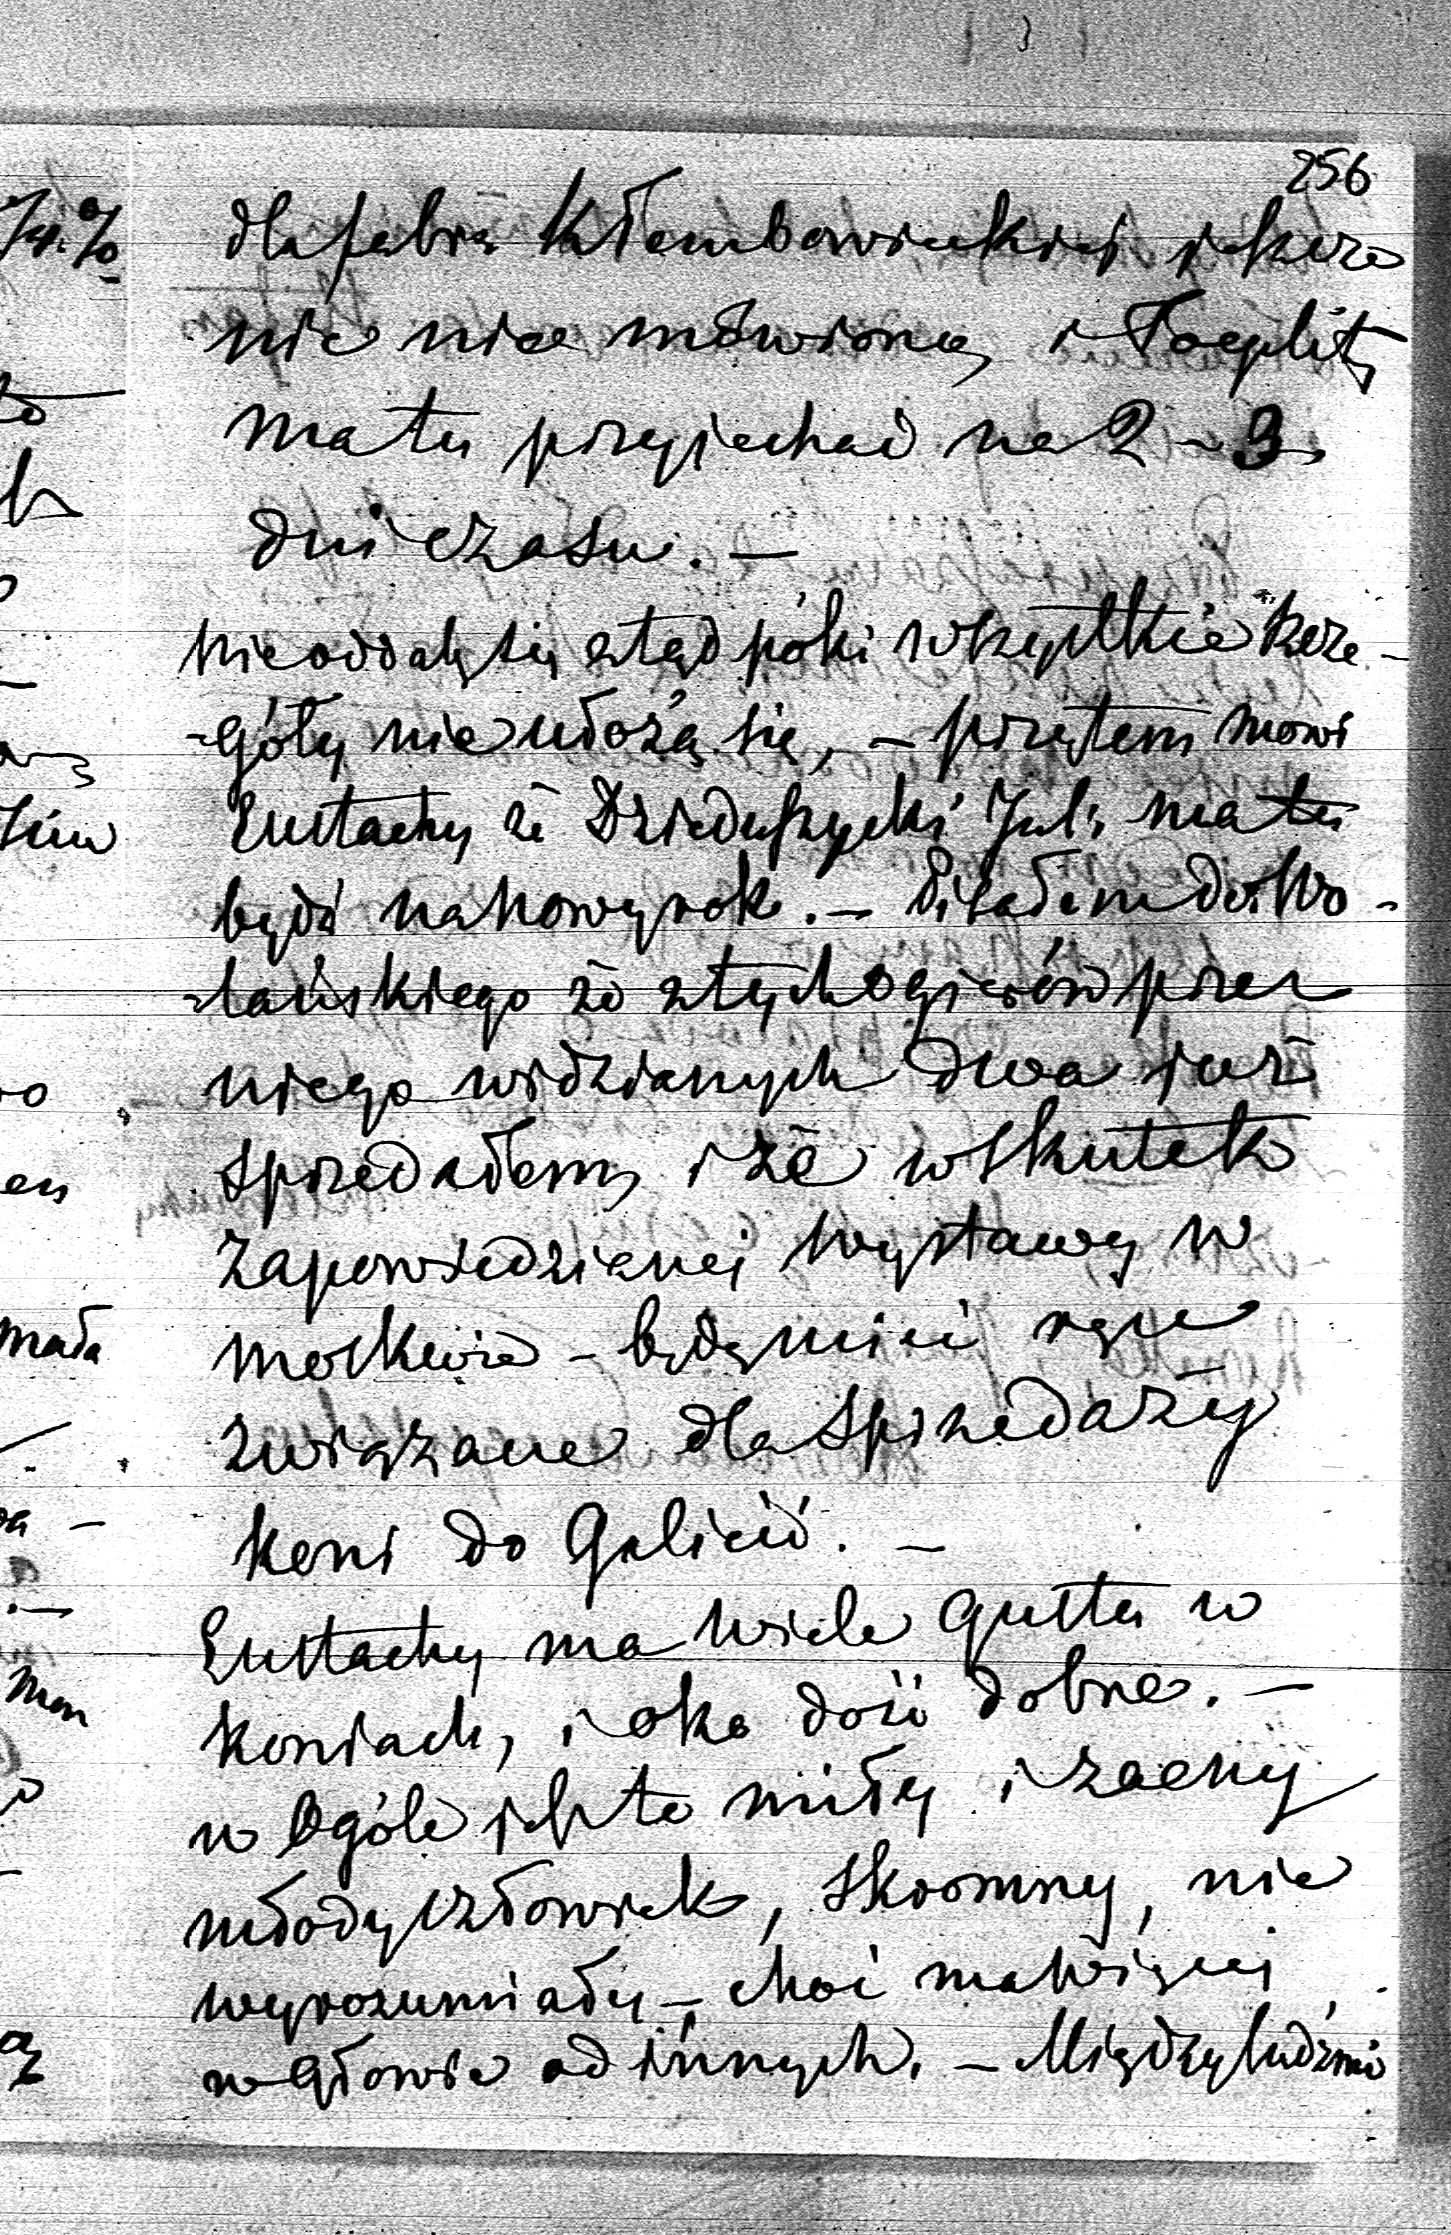 256
dla fabr. Kłembowieckiej jeszcze
nie nice mówioną, i Toeplitz
ma tu przyjechać na 2 - 3
dni czasu. —
nie oddalę się ztąd póki wszystkie szcze-
-góły nie ułożą się, — przytem mowi
Eustachy że Dzieduszycki Jul: ma tu
będź na nowy rok. — Pisałem do Wo-
-lańskiego że z tych ogierów przez
niego widzianych dwa już
sprzedałem, i że wskutek
Zapowiedzianej wystawy w
Moskwie — będę mieć ręce
związane dla sprzedaży
koni do Galicii. —
Eustachy ma wiele gustu w
koniach, i oko dość dobre. —
w Ogóle jest to miły i zacny
młody człowiek, skromny, nie
wyrozumiały — choć ma więcej
w głowie od innych. — Między ludźmi